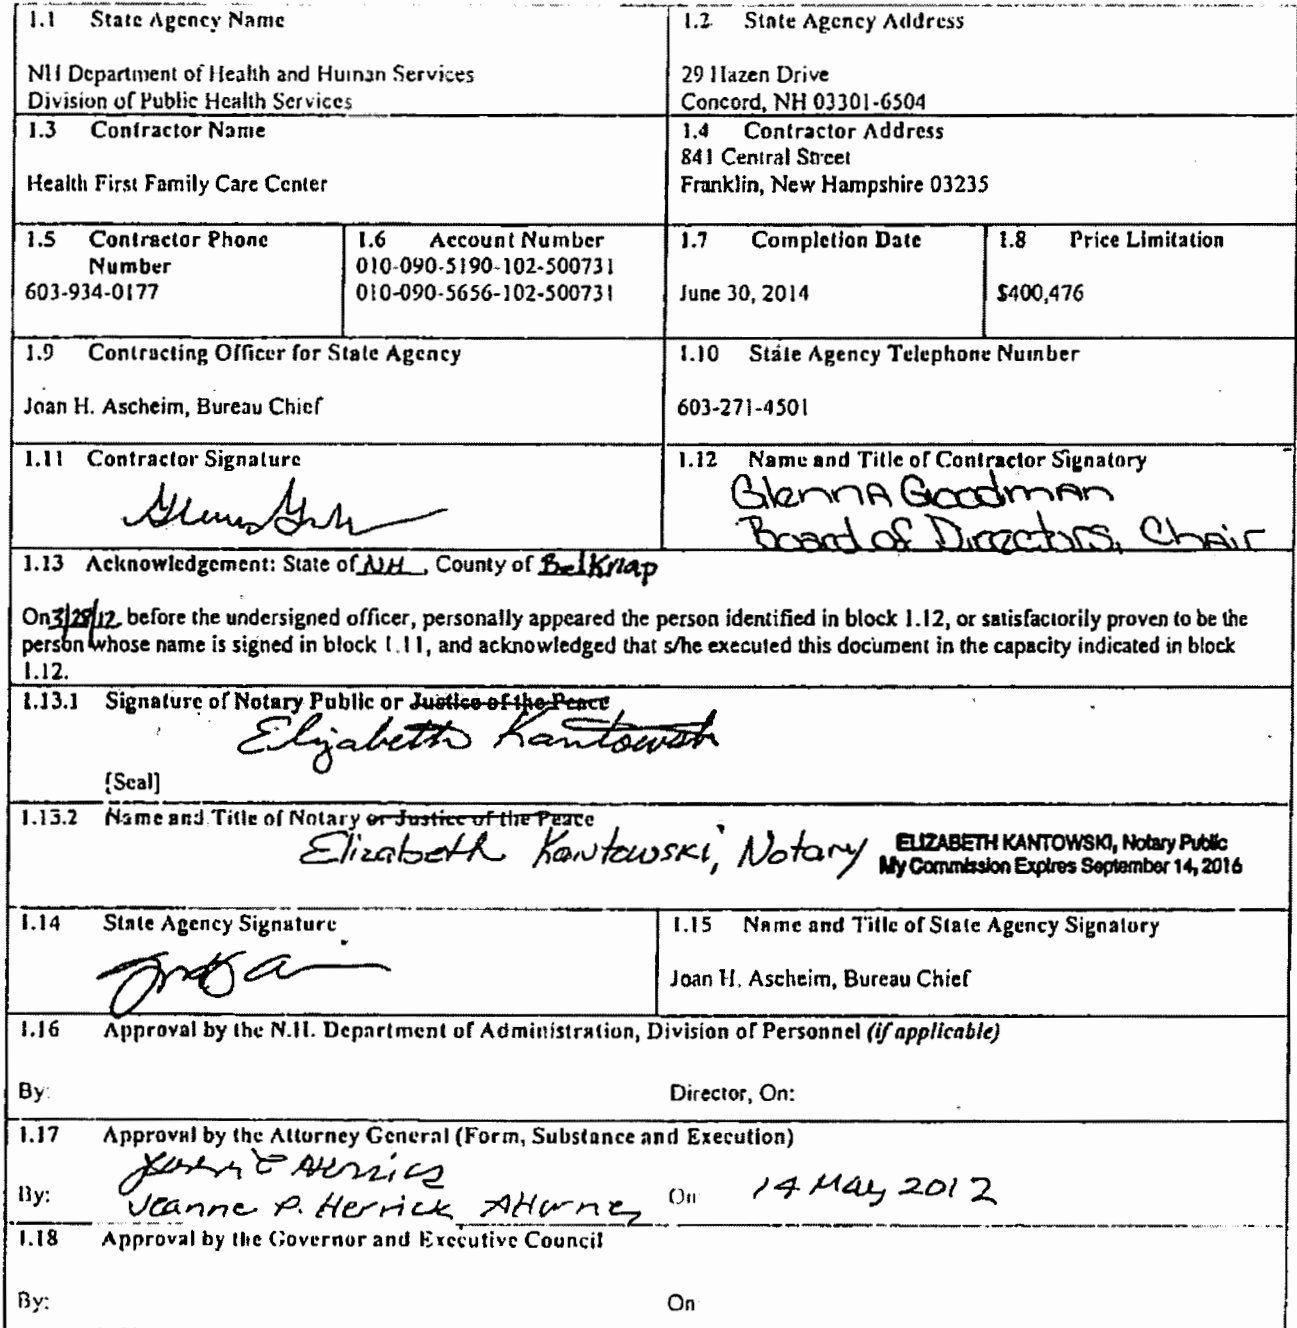 1.1 State Agency Name
NH Department of Health and Human Services
Division of Public Health Services
1.2 State Agency Address
29 Hazen Drive
Concord, NH 03301-6504
1.3 Contractor Name
Health First Family Care Center
1.4 Contractor Address
841 Central Street
Franklin, New Hampshire 03235
1.5 Contractor Phone
Number
603-934-0177
1.6 Account Number
010-090-5190-102-500731
010-090-5656-102-500731
1.7 Completion Date
June 30, 2014
1.8 Price Limitation
$400,476
1.9 Contracting Officer for State Agency
Joan H. Ascheim, Bureau Chief
1.10 State Agency Telephone Number
603-271-4501
1.11 Contractor Signature
1.12 Name and Title of Contractor Signatory
Glenna Goodman
Board of Directors, Chair
1.13 Acknowledgement: State of NH, County of Belknap
On 3/28/12 before the undersigned officer, personally appeared the person identified in block 1.12, or satisfactorily proven to be the
person whose name is signed in block 1.11, and acknowledged that s/he executed this document in the capacity indicated in block
1.12.
1.13.1 Signature of Notary Public or Justice of the Peace
Elizabeth Kantowski
[Seal]
1.13.2 Name and Title of Notary or Justice of the Peace
Elizabeth Kantowski, Notary
ELIZABETH KANTOWSKI, Notary Public
My Commission Expires September 14, 2016
1.14 State Agency Signature
1.15 Name and Title of State Agency Signatory
Joan H. Ascheim, Bureau Chief
1.16 Approval by the N.H. Department of Administration, Division of Personnel (if applicable)
By: Director, On:
1.17 Approval by the Attorney General (Form, Substance and Execution)
By: Jeanne P. Herrick, Attorney On 14 May 2012
1.18 Approval by the Governor and Executive Council
By: On